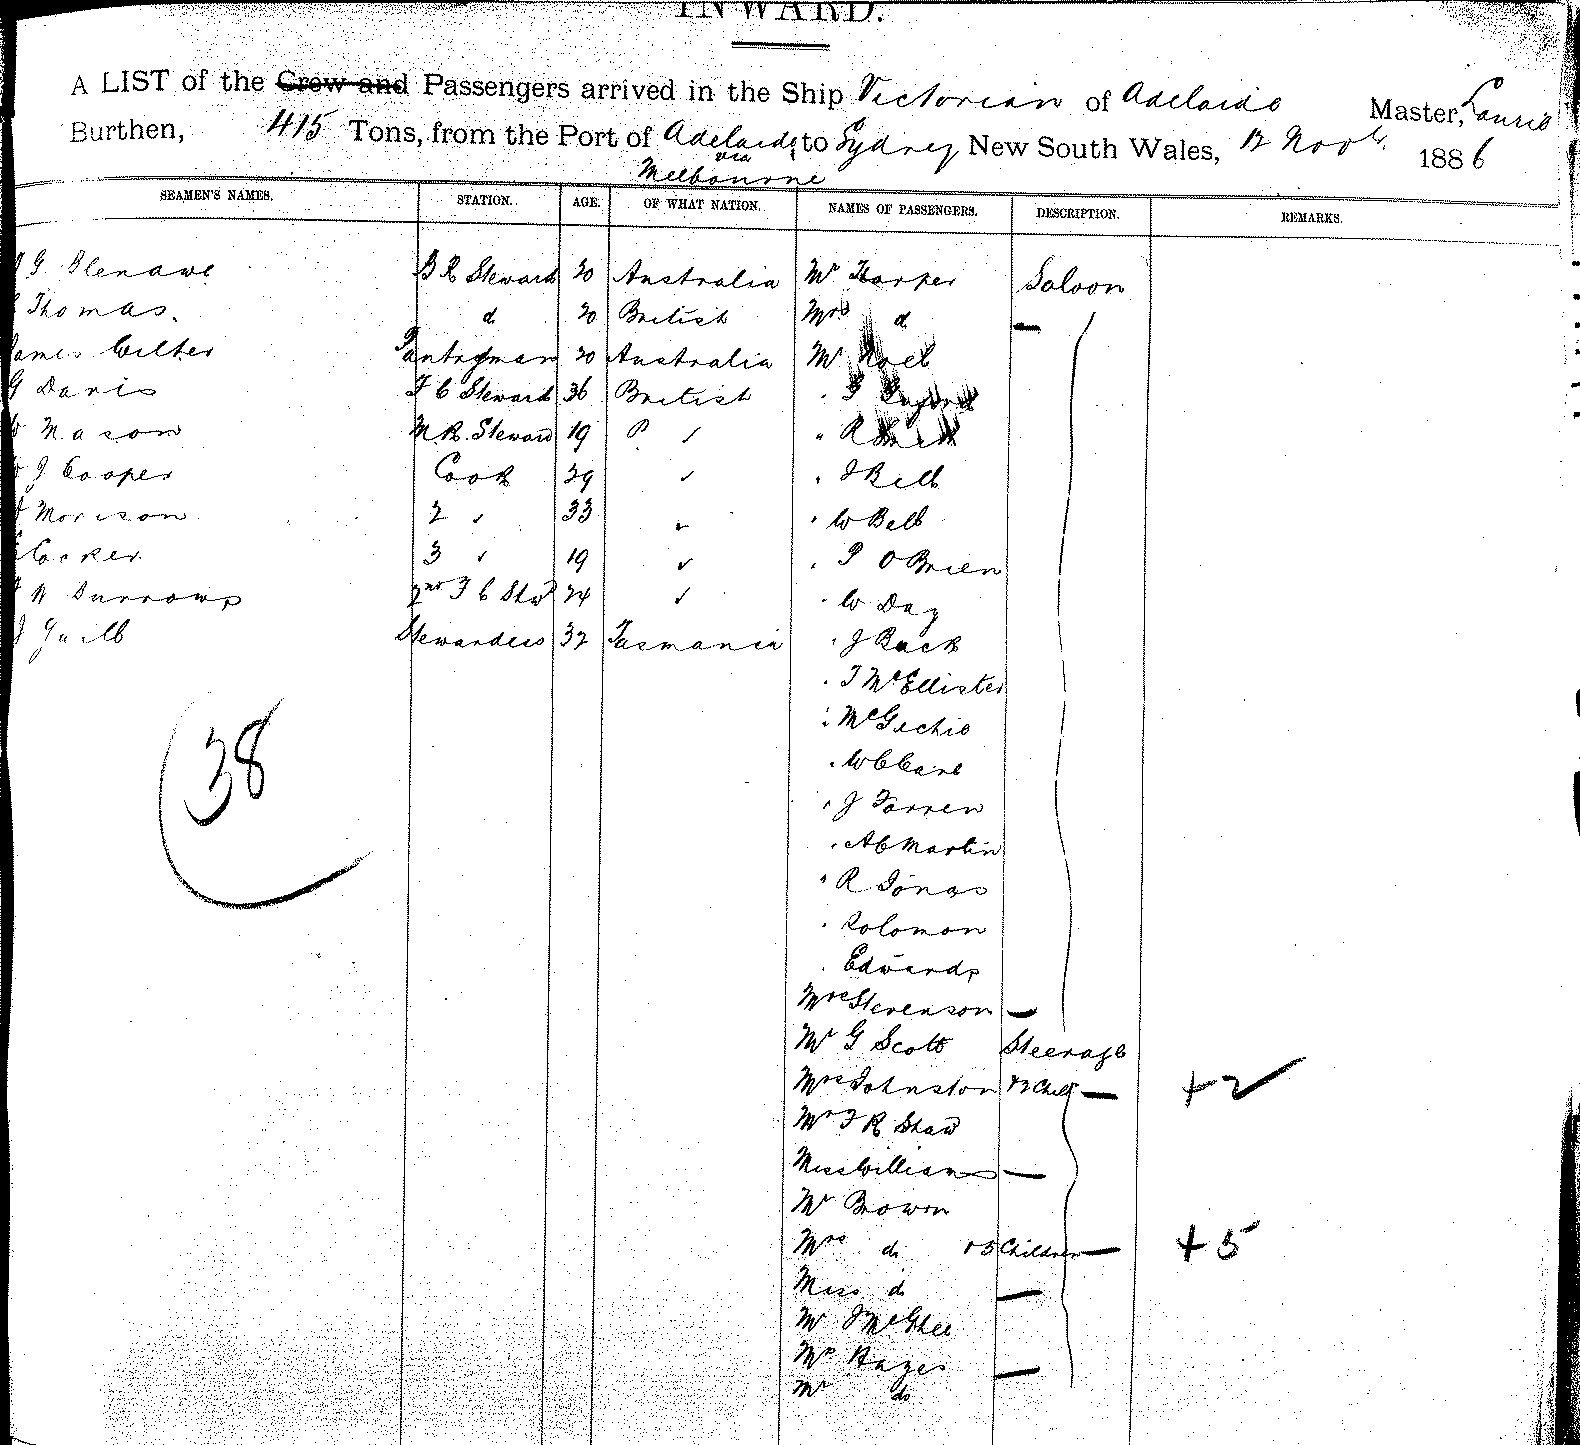 INWARD.
A LIST of the Crew and Passengers arrived in the Ship Victorian of Adelaide Master, Laurie
Burthen, 415 Tons, from the Port of Adelaide to Sydney New South Wales, 12 Novr. 1886
via
Melbourne
SEAMEN'S NAMES. STATION. AGE. OF WHAT NATION. NAMES OF PASSENGERS. DESCRIPTION. REMARKS.
G B R Steward 20 Australia Mr Harper Saloon
Thomas. do 20 British Mrs do —
James Pantryman 20 Australia Mr Noel
G Davis F C Steward 36 British "
Mason M R. Steward 19 " R
J Cooper Cook 29 " J Bell
Morison 2 " 33 " W Bell
Cocker 3 " 19 " P O'Brien
Burrows 2nd F C Std 24 " W Day
J Guilb Stewardess 32 Tasmania " J Rack
" J McEllister
" McGechie
" W Clark
" J Farren
" A C Martin
" R Jonas
" Solomon
" Edwards
38
Mrs Stevenson —
Mr G Scott Steerage
Mrs Johnston & 2 Chil — +2
Mr F R Shaw
Miss Williams —
Mr Brown
Mrs do + 5 Children — +5
Miss do —
Mr J McGhee
Mrs Hayes —
Mr do